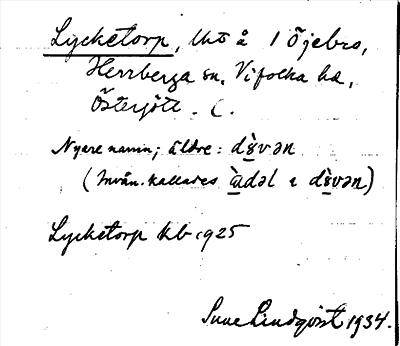 Lycketorp, lht å 1 Öjebro,
Herrberga sn, Vifolka hd,
Östergötl.
Nyare namn; äldre: dɛ̀vən
(Invån. kallades àdəl i dɛ̀vən)
Lycketorp kb 1925
Sune Lindqvist 1934.